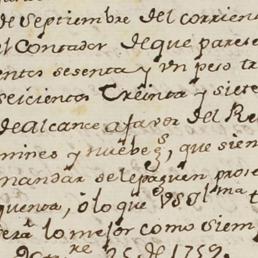 de septiembre del corrien
el Contador de que parese
entos sesenta y un peso tr
seicientos treinta y siete
de alcance a favor del Re
mines y nuebe ss, que sien
mandar se le paguen pros
quenta, ô lo que VS Ilma t
sera lo mejor como siem
re 25 de 1759